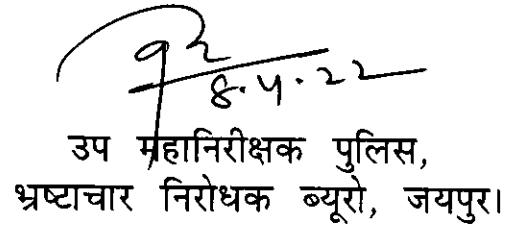 8.4.22
उप महानिरीक्षक पुलिस,
भ्रष्टाचार निरोधक ब्यूरो, जयपुर।